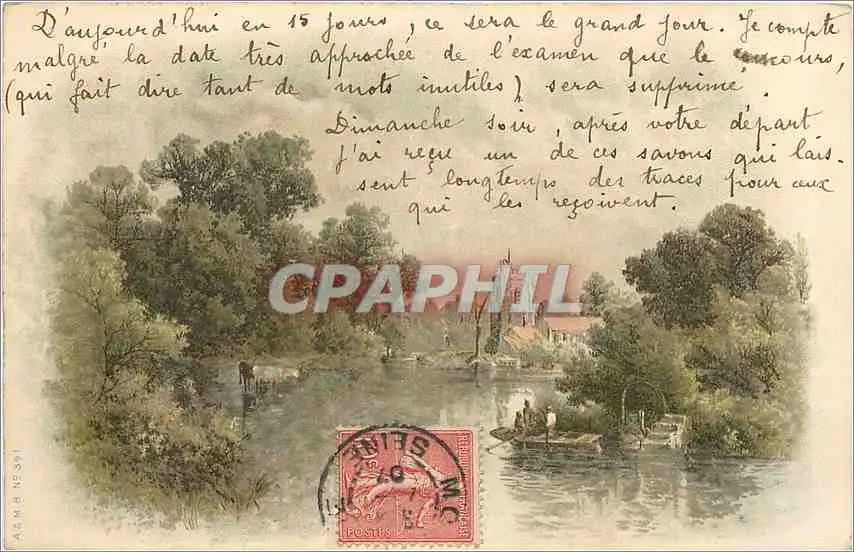 D'aujourd'hui en 15 jours, ce sera le grand jour. Je compte
malgré la date très approchée de l'examen que le concours,
(qui fait dire tant de mots inutiles) sera supprimé.
Dimanche soir, après votre départ
j'ai reçu un de ces savons qui lais-
sent longtemps des traces pour ceux
qui les reçoivent.
CPAPHIL
SEINE
07
M.C
POSTES
A & M. B. No 391